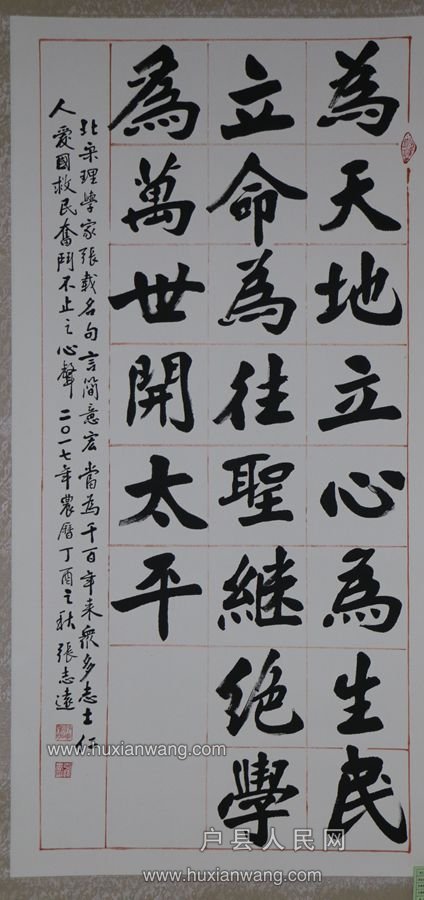 為天地立心為生民
立命為往聖継絶學
為萬世開太平
北宋理學家張載名句言简意宏當為千百年来衆多志士仁
人愛國救民奮鬥不止之心聲 二〇一七年農曆丁酉之秋 張志遠
www.huxianwang.com
户县人民网
www.huxianwang.com